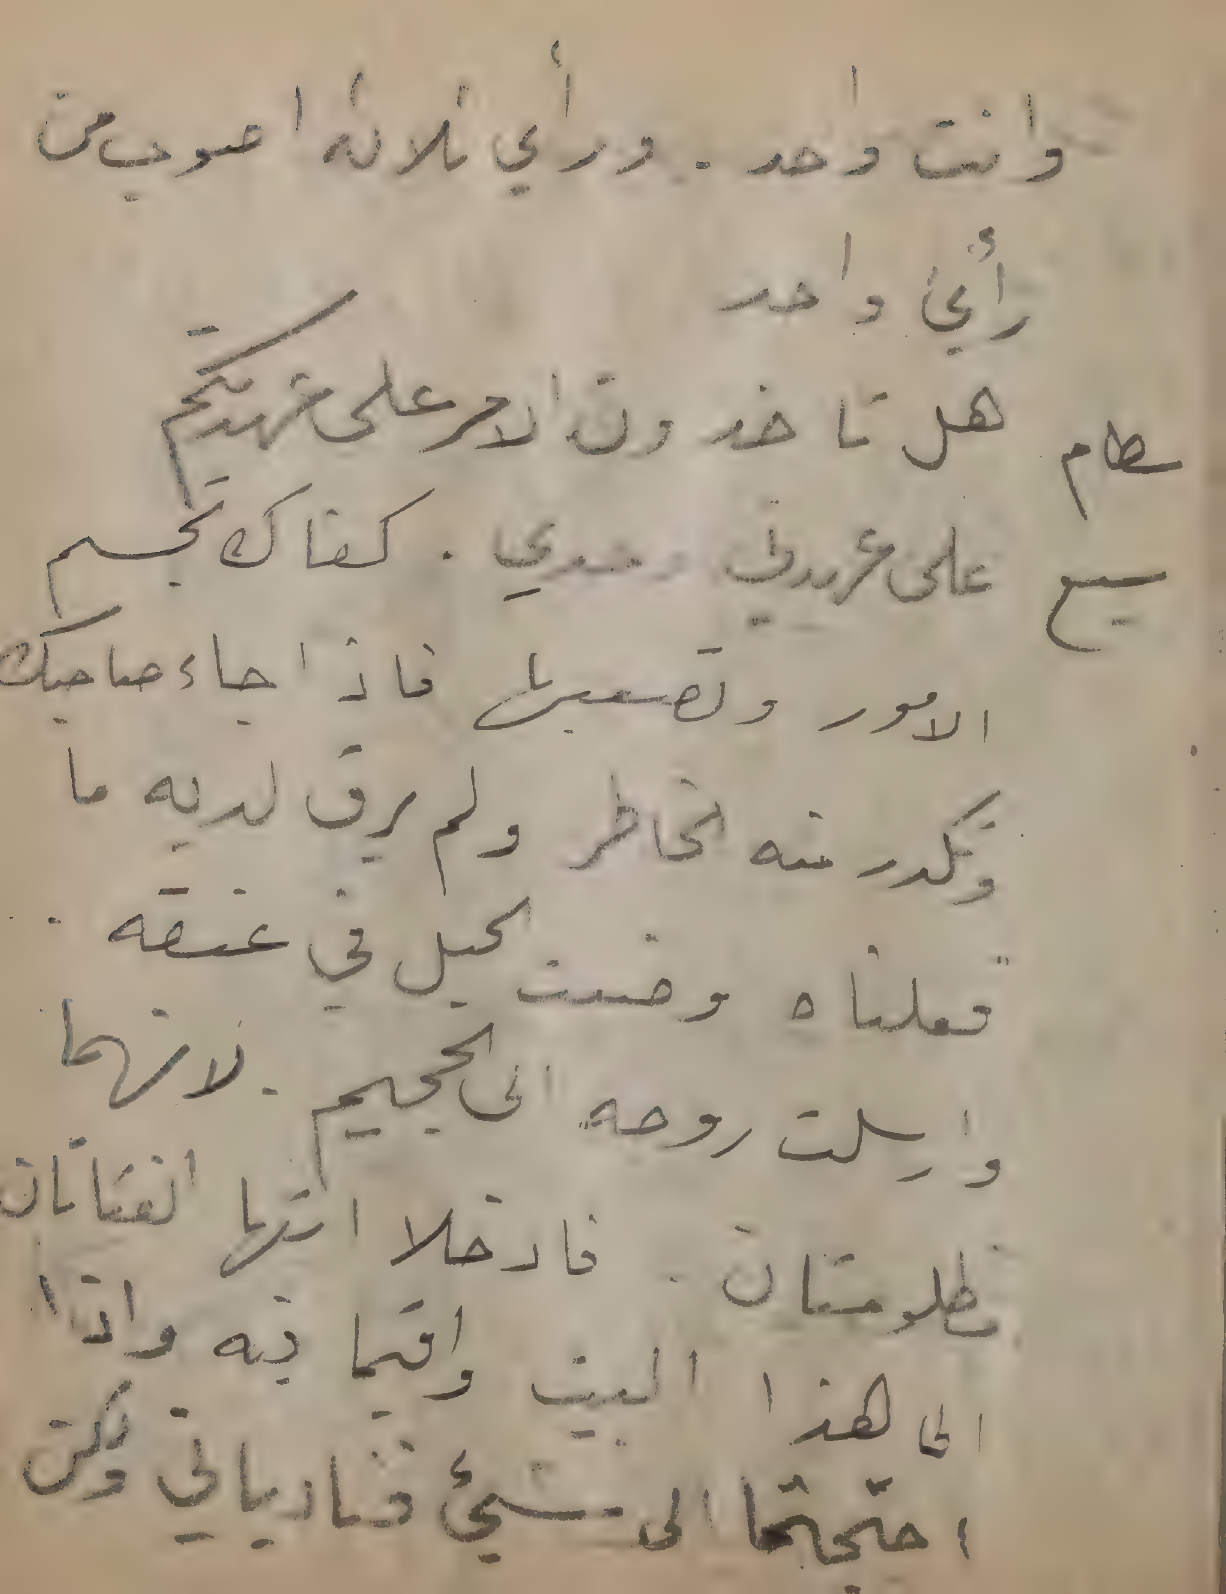 وانت واحد . ورأي ثلاثة اصوب من
رأي واحد
سطام هل تاخذون الامر على عهدتكم
سبع على عهدتي وحدي . كفاك تجسم
الامور وتصعبها فاذا جاء صاحبك
وتكدر منه الخاطر ولم يرق لديه ما
فعلناه وضعت الحبل في عنقه .
وارسلت روحه الى الجحيم . لانهما
مظلومتان . فادخلا ايتها الفتاتان
الى هذا البيت واقيما فيه واذا
احتجتما الى شيء فنادياني ولكن